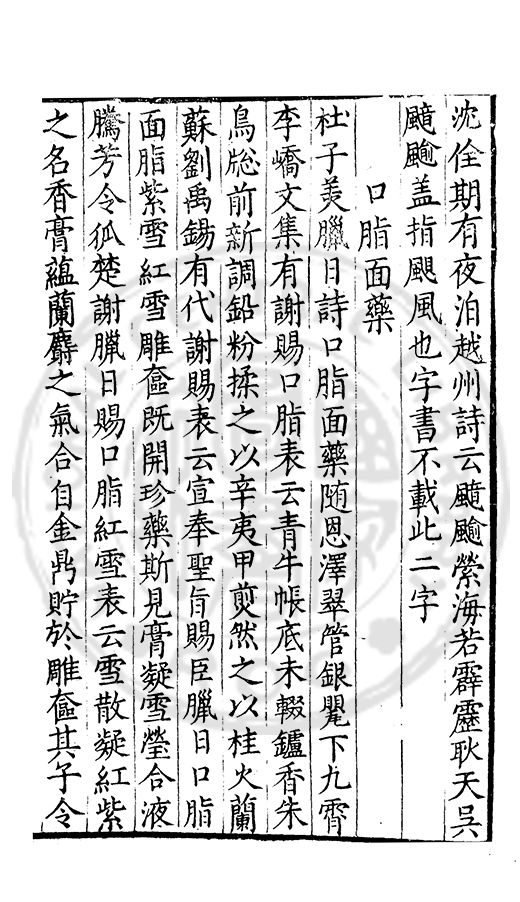 沈佺期有夜泊越州詩云颹颵縈海若霹靂耿天吳
颹颵盖指颶風也字書不載此二字
口脂面藥
杜子美臘日詩口脂面藥随恩澤翠管銀甖下九霄
李嶠文集有謝賜口脂表云青牛帳底未輟鑪香朱
鳥䆫前新調鉛粉揉之以辛夷甲煎然之以桂火蘭
蘇劉禹錫有代謝賜表云宣奉聖旨賜臣臘日口脂
面脂紫雪紅雪雕奩既開珍藥斯見膏凝雪瑩合液
騰芳令狐楚謝臘日賜口脂紅雪表云雪散凝紅紫
之名香膏蘊蘭麝之氣合自金鼎貯於雕奩其子令